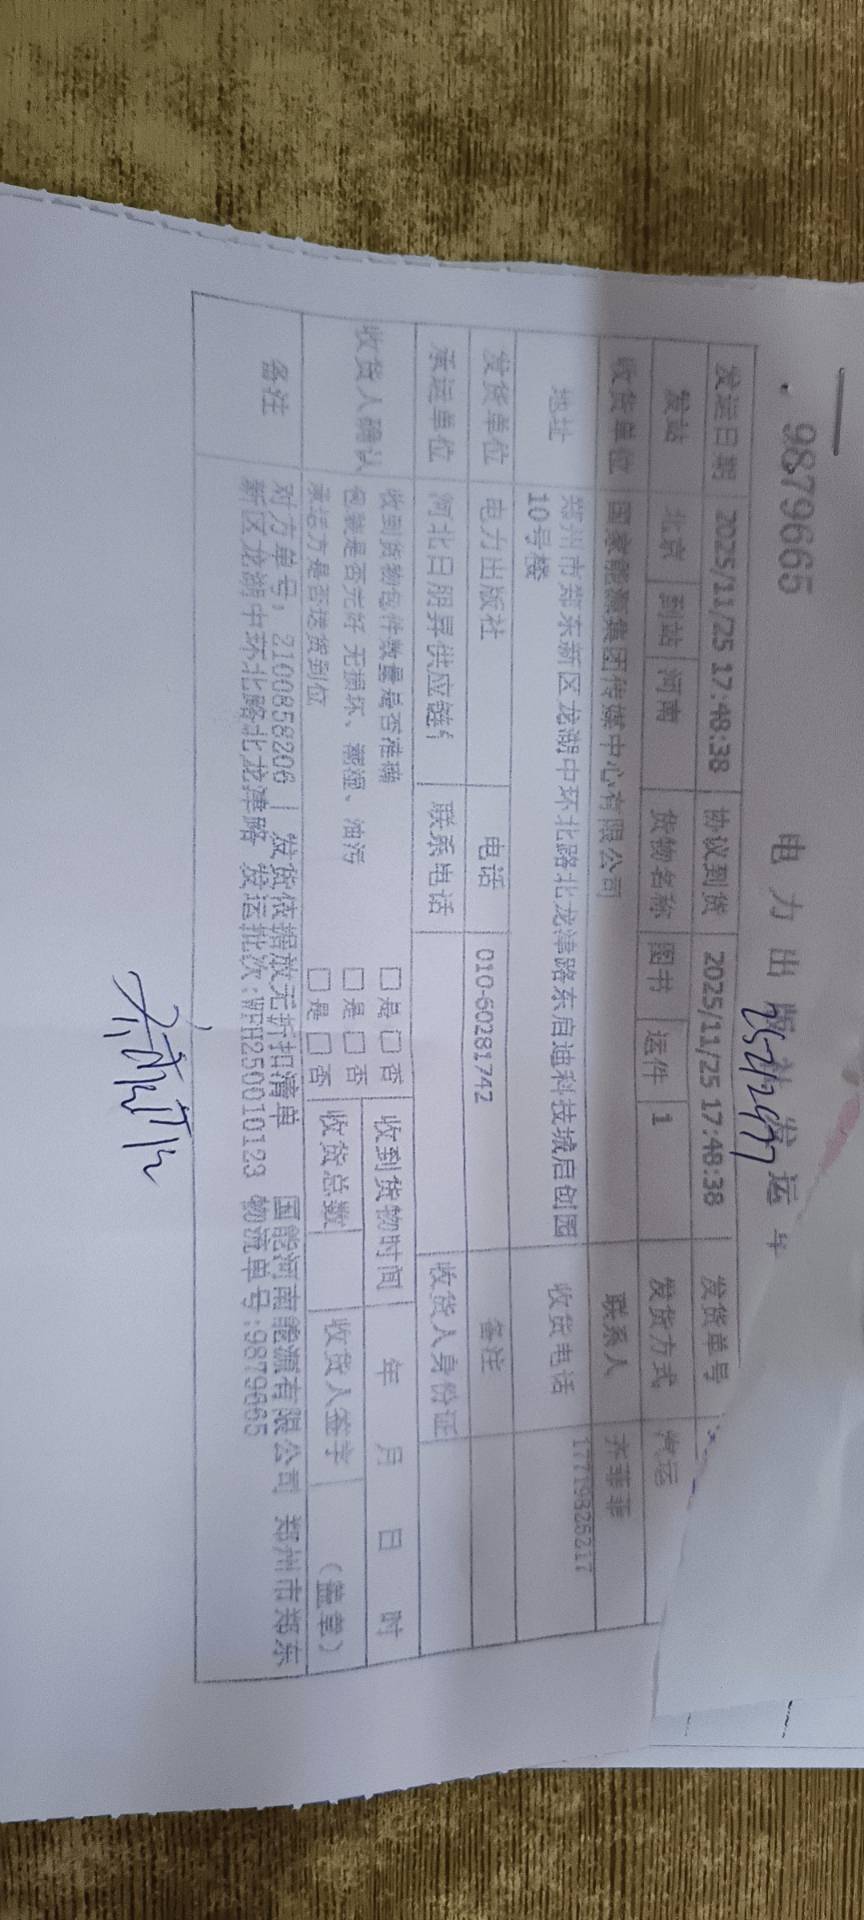 9879665
电力出版社发运单
发运日期 2025/11/25 17:48:38 协议到货 2025/11/25 17:48:38 发货单号
发站 北京 到站 河南 货物名称 图书 运件 1 发货方式 汽运
收货单位 国家能源集团传媒中心有限公司 联系人
地址 郑州市郑东新区龙湖中环北路北龙津路东启迪科技城启创园 收货电话 17719825217
10号楼
发货单位 电力出版社 电话 010-60281742 备注
承运单位 河北日朋昇供应链 联系电话 收货人身份证
收货人确认 收到货物包件数量是否准确 □是□否 收到货物时间 年 月 日 时
包装是否完好 无损坏、潮湿、油污 □是□否
承运方是否送货到位 □是□否 收货总数 收货人签字 (盖章)
备注 对方单号，2100858206 | 发货依据放无折扣清单 国能河南能源有限公司 郑州市郑东
新区龙湖中环北路北龙津路 发运批次:WFH250010123 物流单号:9879665